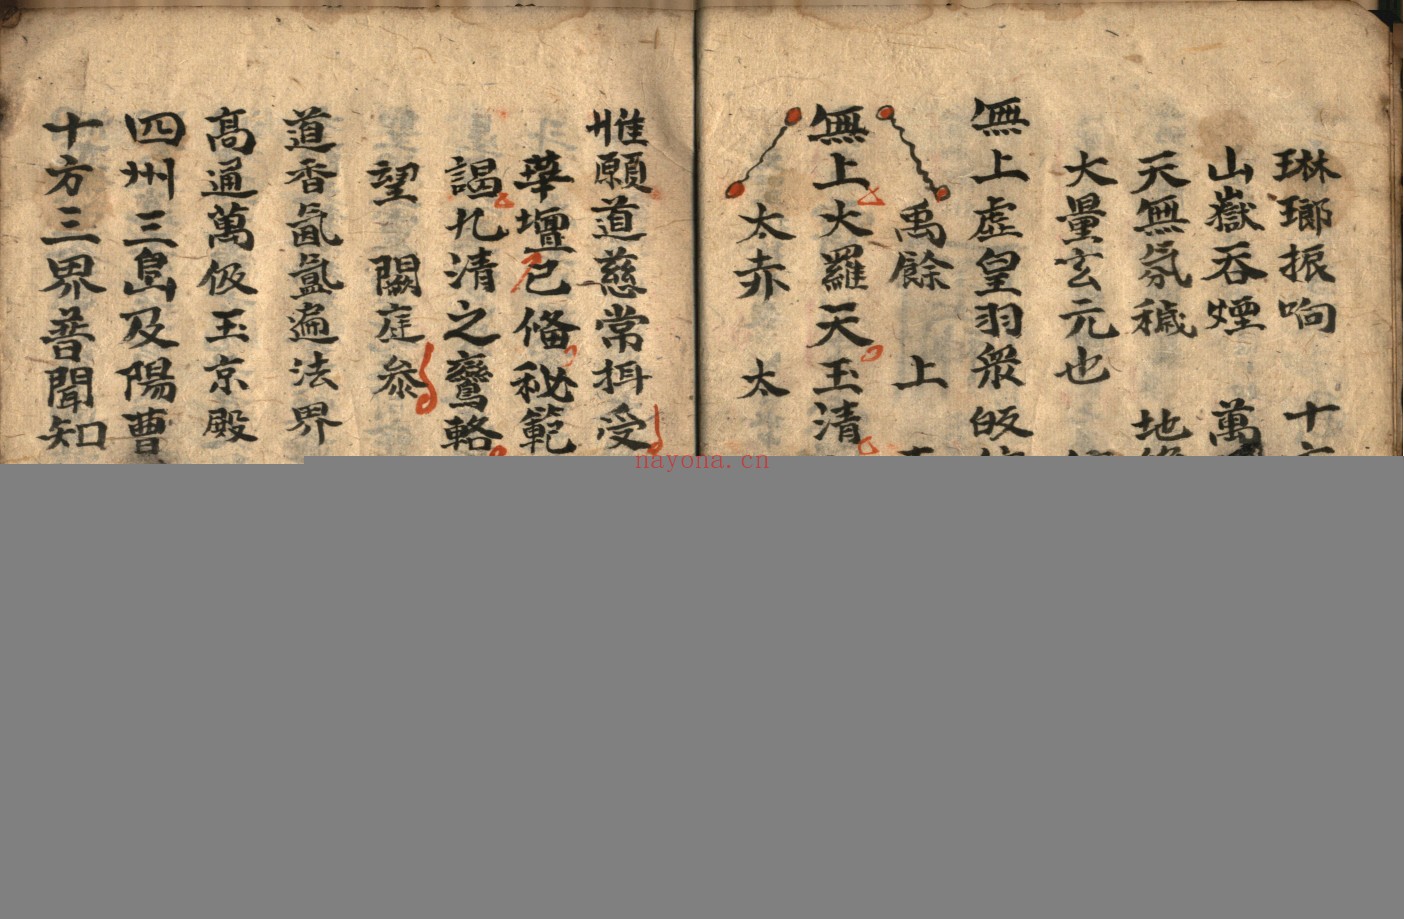 琳瑯振响 十
山嶽吞煙 萬
天無氛穢 地
大量玄元也
無上虛皇羽眾皈
禹餘 上
無上大羅天玉清
太赤 太
惟願道慈常拜受
華壇已俻秘範
謁九清之鸞輅
望 闕庭叅
道香氤氳遍法界
高通萬伋玉京殿
四州三島及陽曹
十方三界普聞知
nayona.cn